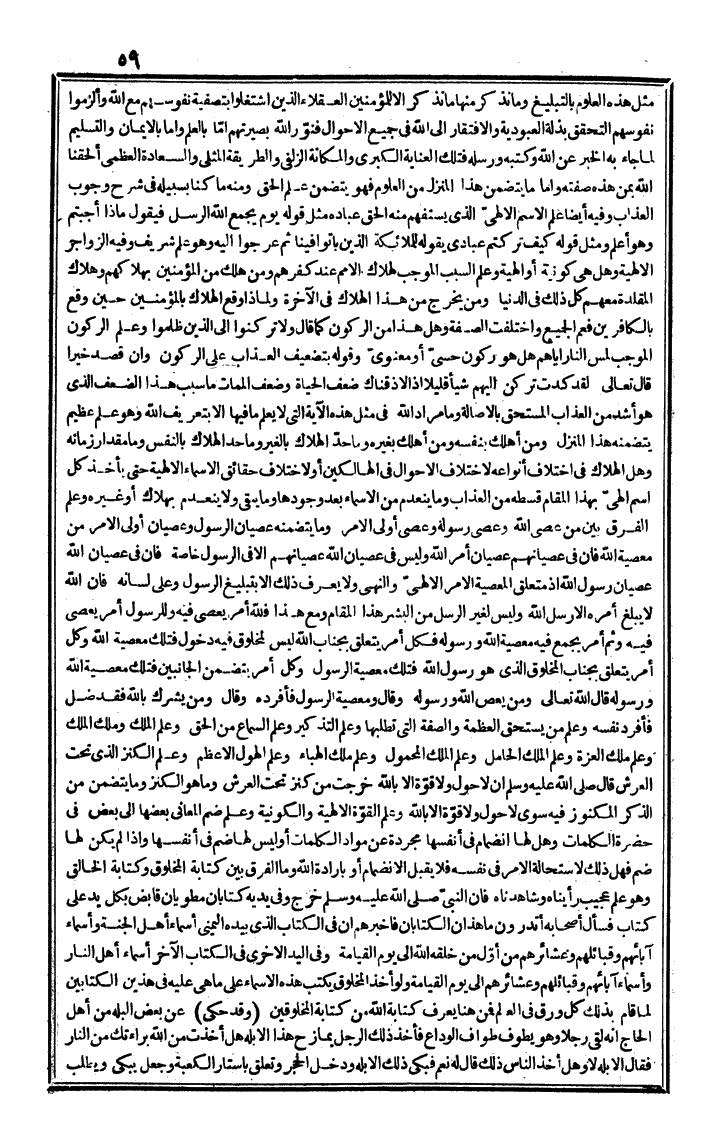 ٥٩
مثل هذه العلوم بالتبليغ وما نذكر منها ما نذكر الا للمؤمنين العقلاء الذين اشتغلوا بتصفية نفوسهم مع الله وألزموا
نفوسهم التحقق بذلة العبودية والافتقار الى الله فى جميع الاحوال فنوّر الله بصيرتهم امّا بالعلم واما بالايمان والتسليم
لما جاء به الخبر عن الله وكتبه ورسله فتلك العناية الكبرى والمكانة الزلفى والطريقة المثلى والسعادة العظمى ألحقنا
الله بمن هذه صفته واما ما يتضمن هذا المنزل من العلوم فهو يتضمن علم الحق ومنه ما كنا بسبيله فى شرح وجوب
العذاب وفيه أيضا علم الاسم الالهىّ الذى يستفهم منه الحق عباده مثل قوله يوم يجمع الله الرسل فيقول ماذا أجبتم
وهو أعلم ومثل قوله كيف تركتم عبادى يقوله للملائكة الذين باتوا فينا ثم عرجوا اليه وهو علم شريف وفيه الزواجر
الالهية وهل هى كونية أو الهية وعلم السبب الموجب لهلاك الامم عند كفرهم ومن هلك من المؤمنين بهلاكهم وهلاك
المقلدة معهم كل ذلك فى الدنيا ومن يخرج من هذا الهلاك فى الآخرة ولماذا وقع الهلاك بالمؤمنين حين وقع
بالكافرين فعم الجميع واختلفت الصفة وهل هذا من الركون كما قال ولا تركنوا الى الذين ظلموا وعلم الركون
الموجب لمس النار اياهم هل هو ركون حسىّ أو معنوىّ وقوله بتضعيف العذاب على الركون وان قصد خيرا
قال تعالى لقد كدت تركن اليهم شيأ قليلا اذا لاذقناك ضعف الحياة وضعف الممات ما سبب هذا الضعف الذى
هو أشد من العذاب المستحق بالاصالة وما مراد الله فى مثل هذه الآية التى لا يعلم ما فيها الا بتعريف الله وهو علم عظيم
يتضمنه هذا المنزل ومن أهلك بنفسه ومن أهلك بغيره وما حدّ الهلاك بالغير وما حد الهلاك بالنفس وما مقدار زمانه
وهل الهلاك فى اختلاف أنواعه لاختلاف الاحوال فى الهالكين أو لاختلاف حقائق الاسماء الالهية حتى يأخذ كل
اسم الهىّ بهذا المقام قسطه من العذاب وما ينعدم من الاسماء بعد وجودها وما يبقى ولا ينعدم بهلاك أو غيره وعلم
الفرق بين من عصى الله وعصى رسوله وعصى أولى الامر وما يتضمنه عصيان الرسول وعصيان أولى الامر من
معصية الله فان فى عصيانهم عصيان أمر الله وليس فى عصيان الله عصيانهم الا فى الرسول خاصة فان فى عصيان الله
عصيان رسول الله اذ متعلق المعصية الامر الالهىّ والنهى ولا يعرف ذلك الا بتبليغ الرسول وعلى لسانه فان الله
لا يبلغ أمره الا رسل الله وليس لغير الرسل من البشر هذا المقام ومع هذا فلله أمر يعصى فيه وللرسول أمر يعصى
فيه وثم أمر يجمع فيه معصية الله ورسوله فكل أمر يتعلق بجناب الله ليس لمخلوق فيه دخول فتلك معصية الله وكل
أمر يتعلق بجناب المخلوق الذى هو رسول الله فتلك معصية الرسول وكل أمر يتضمن الجانبين فتلك معصية الله
ورسوله قال الله تعالى ومن يعص الله ورسوله وقال ومعصية الرسول فأفرده وقال ومن يشرك بالله فقد ضل
فأفرد نفسه وعلم من يستحق العظمة والصفة التى تطلبها وعلم التذكير وعلم السماع من الحق وعلم الملك وملك الملك
وعلم ملك العزة وعلم الملك الحامل وعلم الملك المحمول وعلم ملك الهباء وعلم الهول الاعظم وعلم الكنز الذى تحت
العرش قال صلى الله عليه وسلم ان لا حول ولا قوّة الا بالله خرجت من كنز تحت العرش وما هو الكنز وما يتضمن من
الذكر المكنوز فيه سوى لا حول ولا قوّة الا بالله وعلم القوّة الالهية والكونية وعلم ضم المعانى بعضها الى بعض فى
حضرة الكلمات وهل لها انضمام فى أنفسها مجردة عن مواد الكلمات أو ليس لها ضم فى أنفسها واذا لم يكن لها
ضم فهل ذلك لاستحالة الامر فى نفسه فلا يقبل الانضمام أو بارادة الله وما الفرق بين كتابة المخلوق وكتابة الخالق
وهو علم عجيب رأيناه وشاهدناه فان النبىّ صلى الله عليه وسلم خرج وفى يديه كتابان مطويان قابض بكل يد على
كتاب فسأل أصحابه أتدرون ما هذان الكتابان فاخبرهم ان فى الكتاب الذى بيده اليمنى أسماء أهل الجنة وأسماء
آبائهم وقبائلهم وعشائرهم من أوّل من خلقه الله الى يوم القيامة وفى اليد الاخرى فى الكتاب الآخر أسماء أهل النار
وأسماء آبائهم وقبائلهم وعشائرهم الى يوم القيامة ولو أخذ المخلوق يكتب هذه الاسماء على ما هى عليه فى هذين الكتابين
لما قام بذلك كل ورق فى العالم فمن هنا يعرف كتابة الله من كتابة المخلوقين (وقد حكى) عن بعض البله من أهل
الحاج انه لقى رجلا وهو يطوف طواف الوداع فأخذ ذلك الرجل يمازح هذا الابله هل أخذت من الله براءتك من النار
فقال الابله لا وهل أخذ الناس ذلك قال له نعم فبكى ذلك الابله ودخل الحجر وتعلق باستار الكعبة وجعل يبكى ويطلب